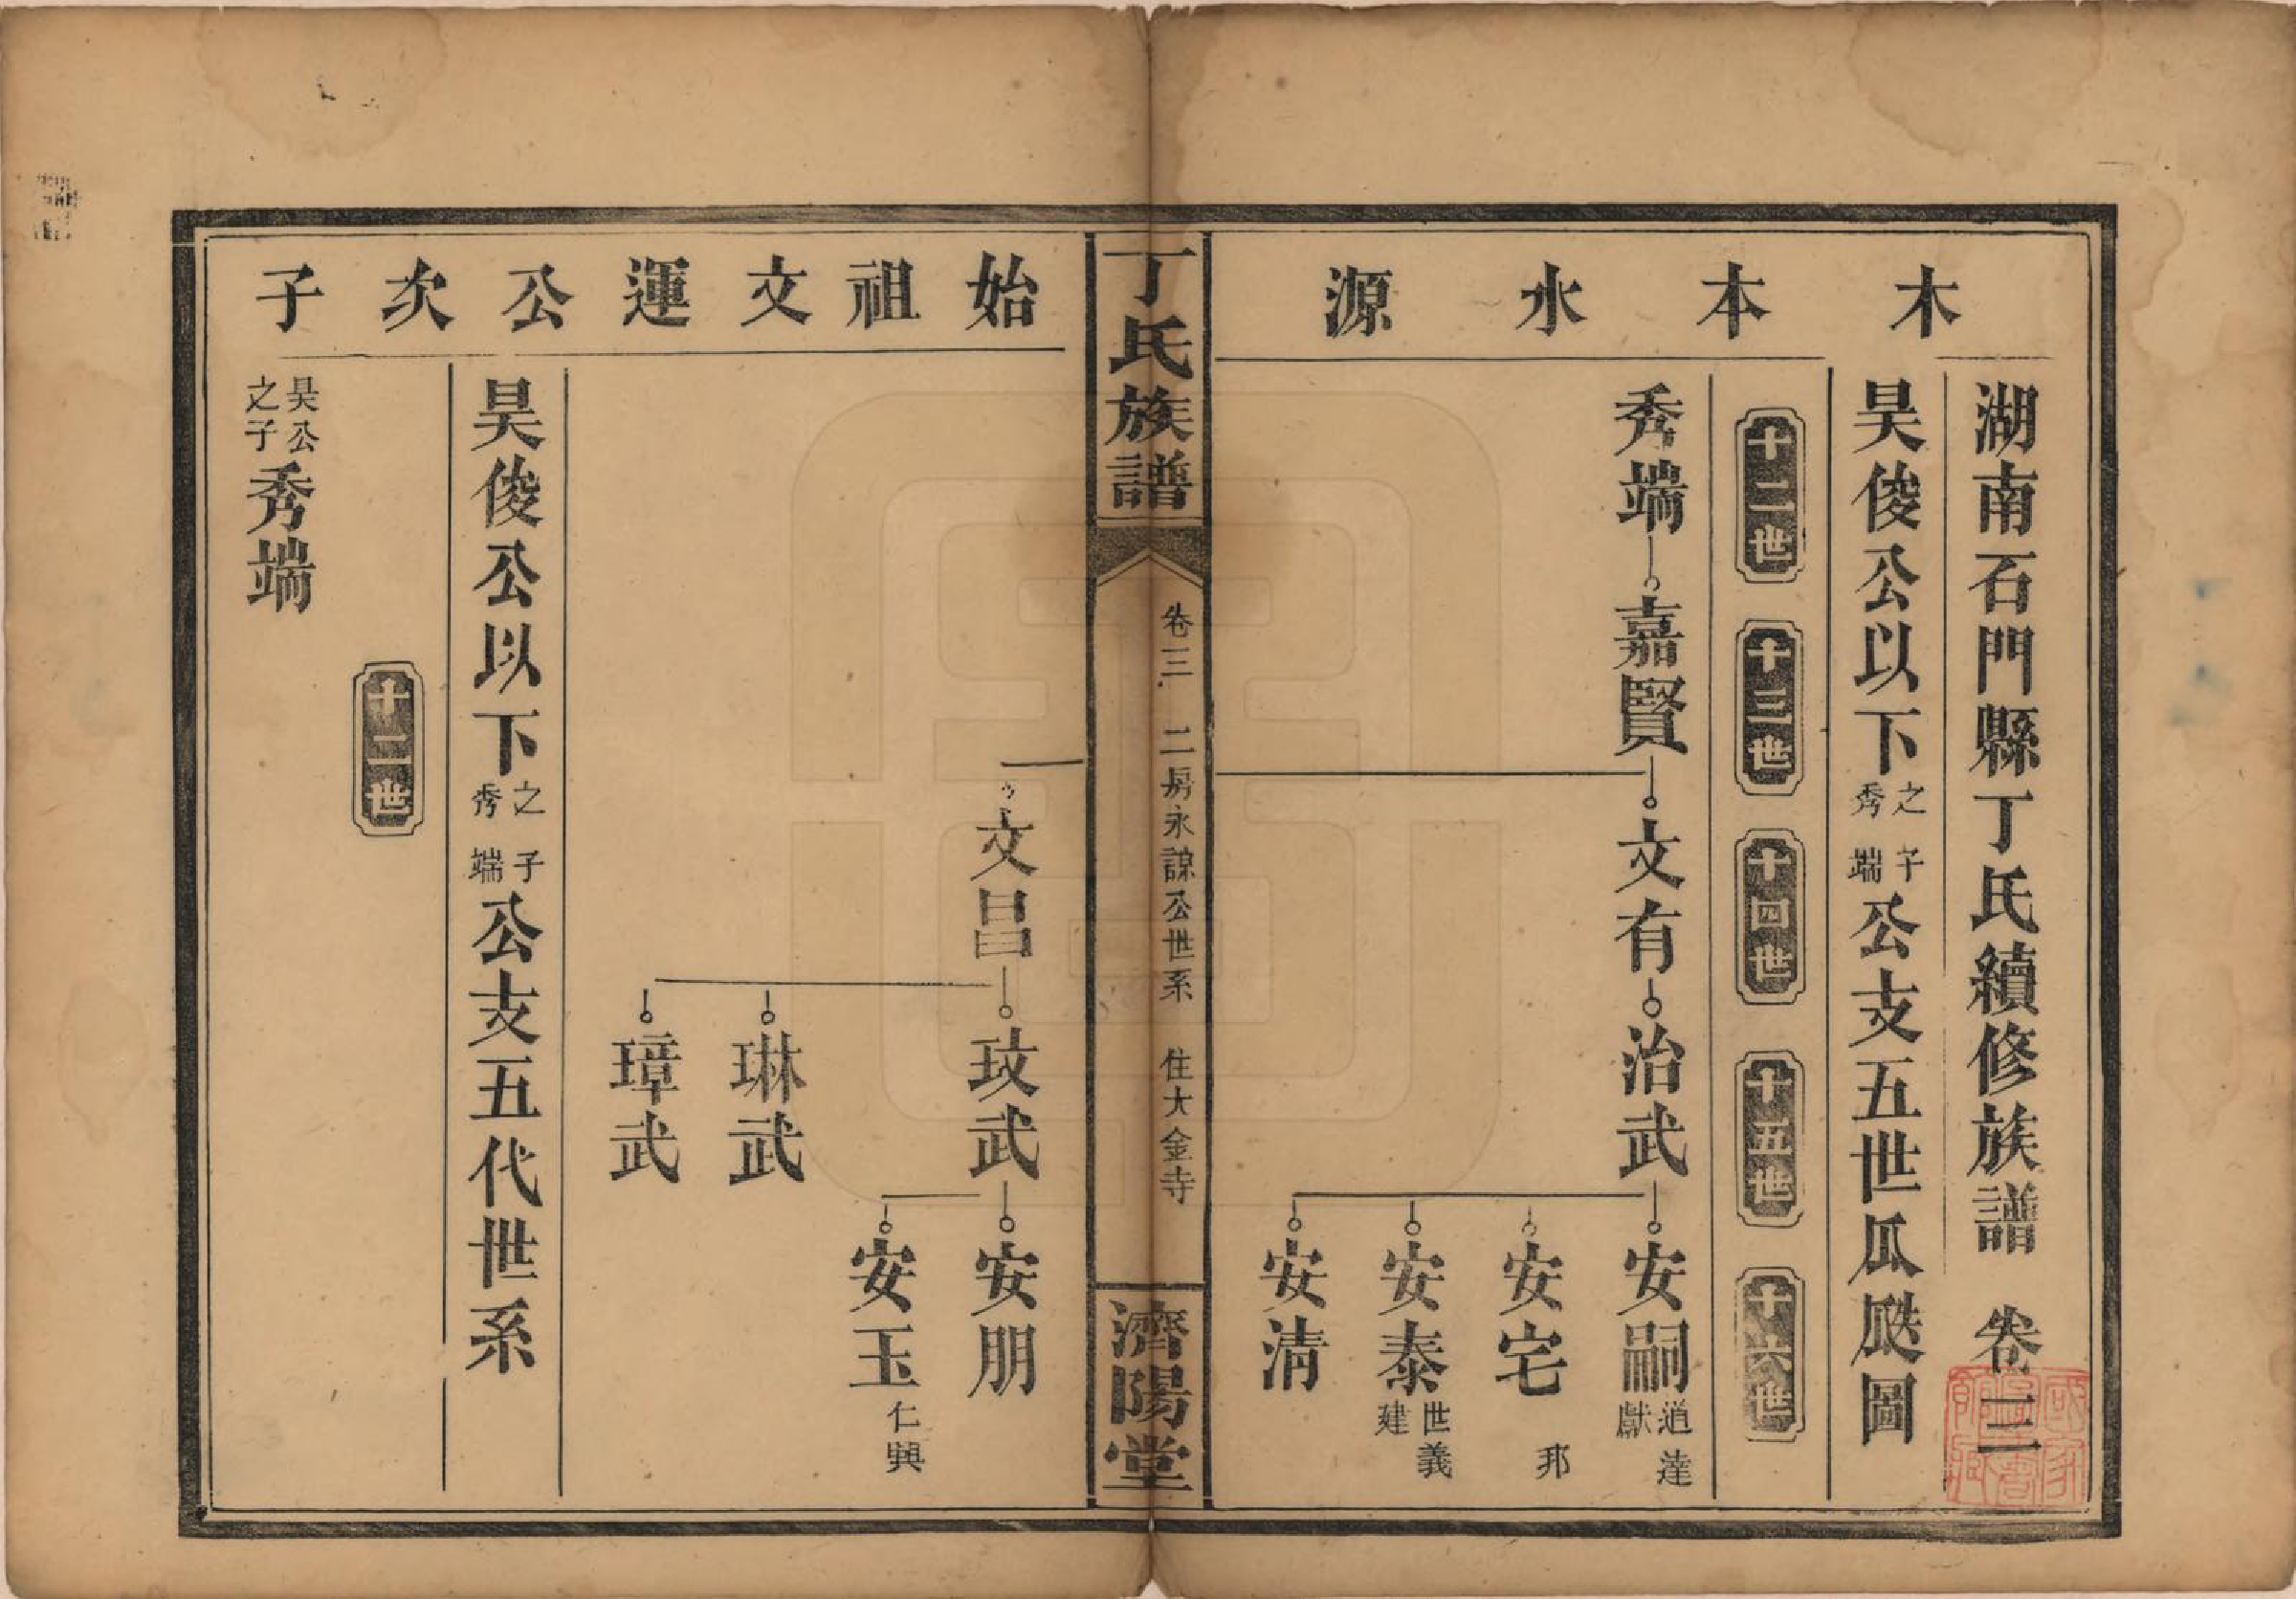 木本水源
湖南石門縣丁氏續修族譜 卷三
昊俊公以下之子秀端公支五世瓜瓞圖
十二世 十三世 十四世 十五世 十六世
秀端 嘉賢 文有 治武 安嗣 道達 獻
安宅 邦
安泰 世義 建
安清
丁氏族譜 卷三 二房永諒公世系 住大金寺 濟陽堂
始祖文運公次子
文昌 玟武 安朋
安玉 仁興
琳武
璋武
昊俊公以下之子秀端公支五代世系
十二世
昊公之子 秀端